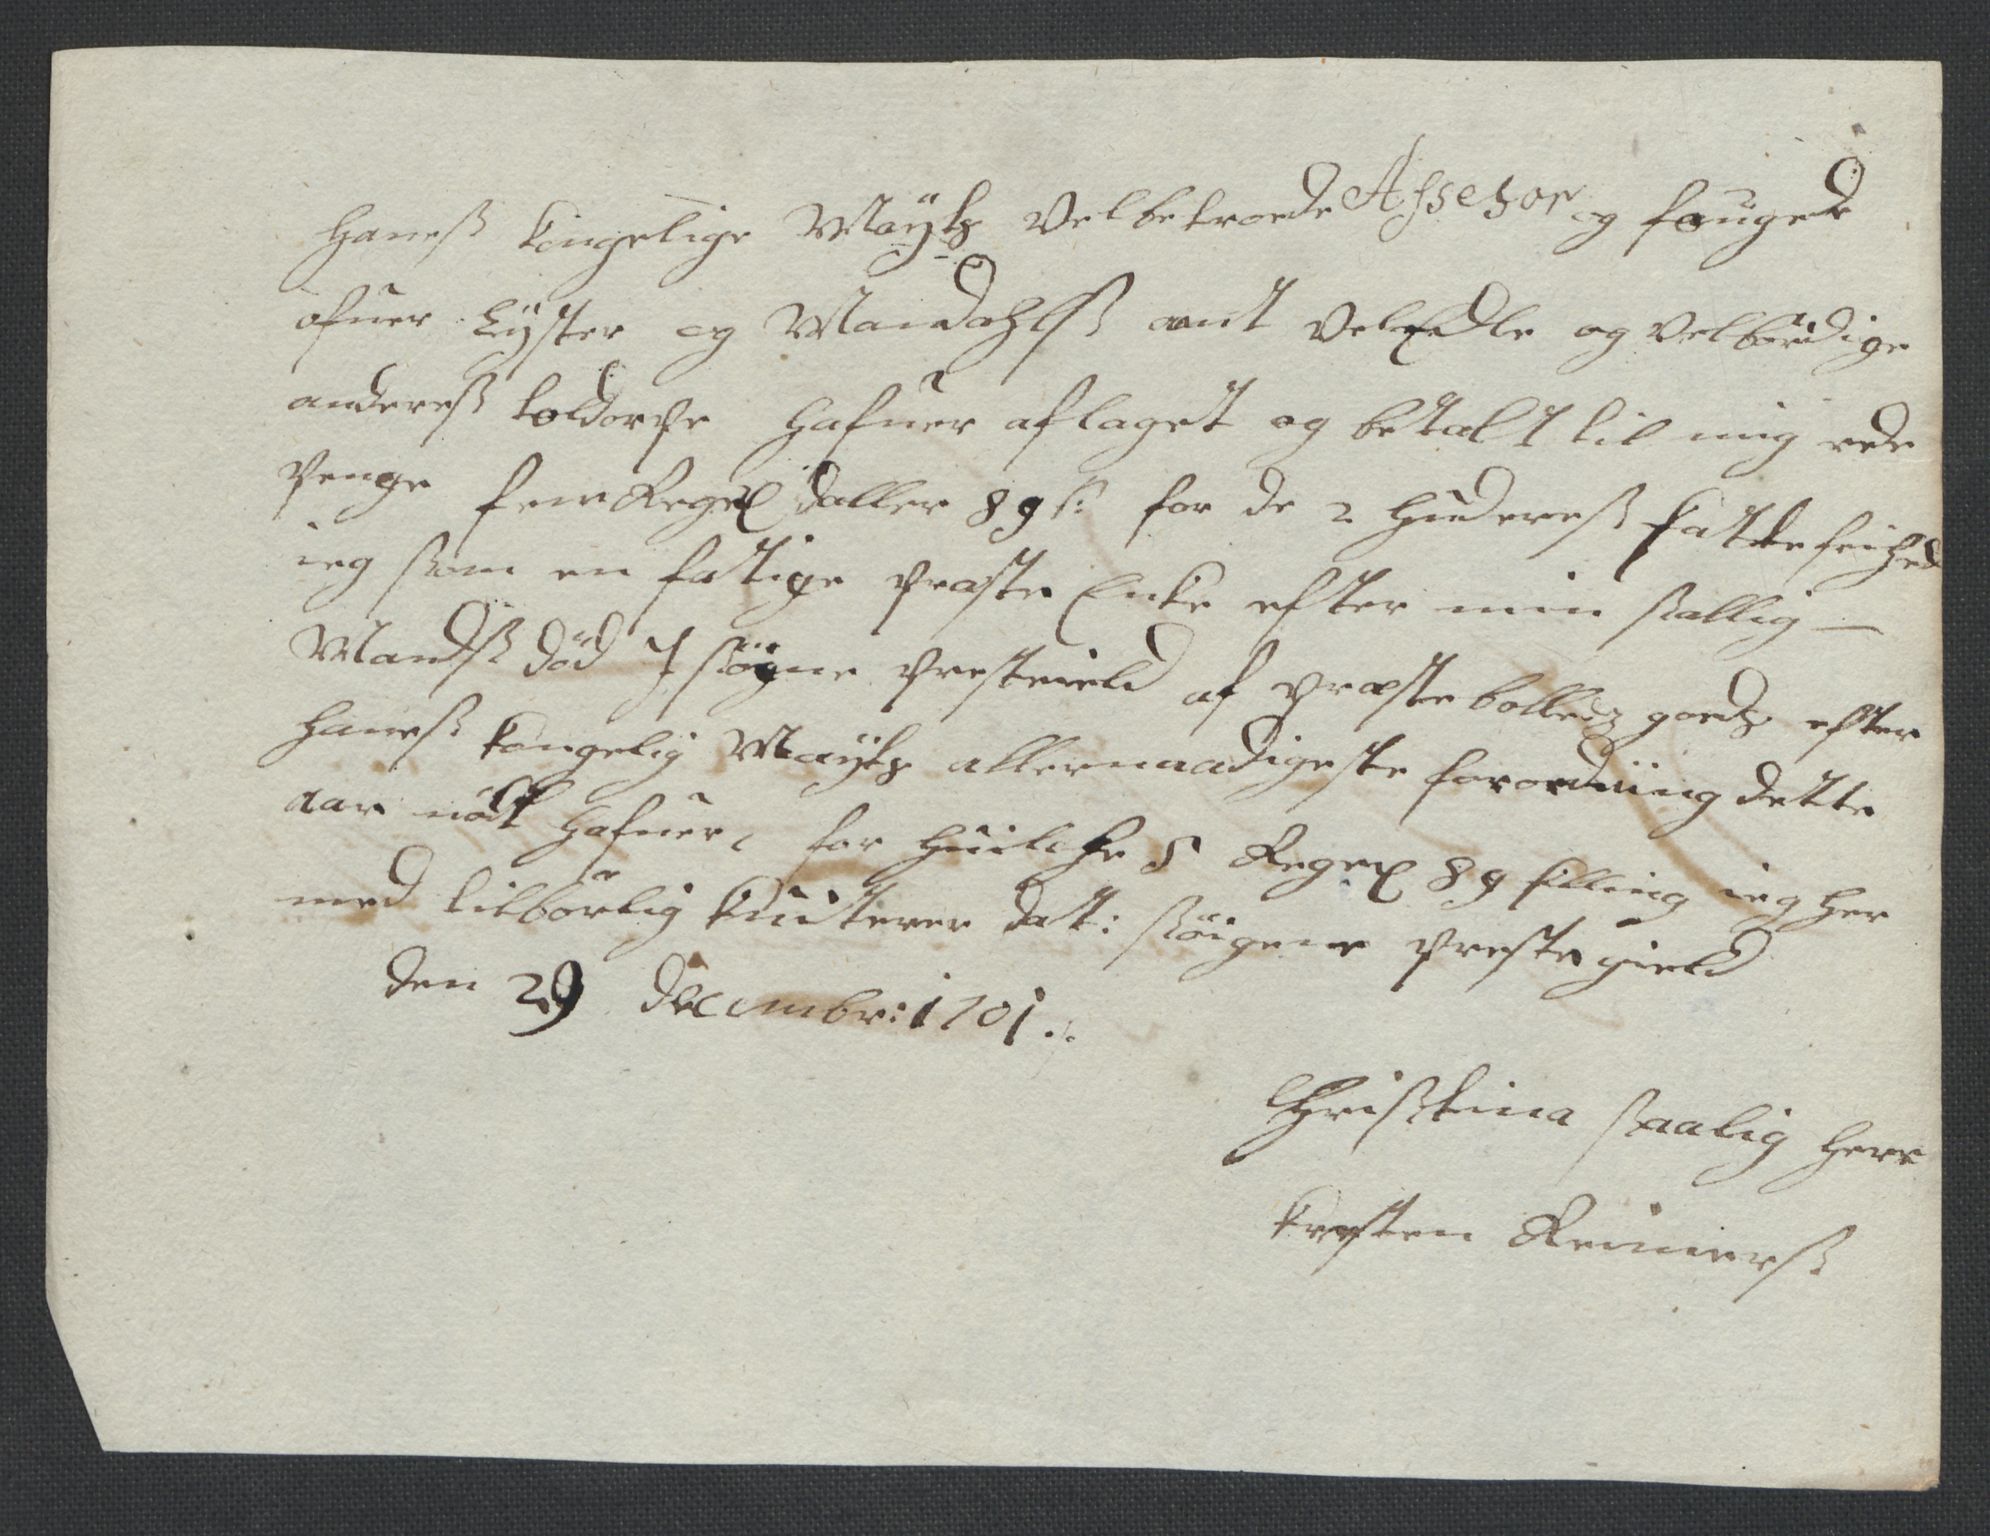 Haneß kongelige Mayts Velbetroede Assesor og fougede
ofuer Lyster og Mandahlß amt VelEdle og Velbördige
andereß toldorph Hafuer aflaget og betalt til mig rede
Penge fem Regxl daller 89 s: for de 2 Huderess skattefrihed
ieg som en fatige Præste Enke efter min sallig
Mandß död I Søgne Presteield af Præstebolledz goedz efter
Haneß kongelig Mayts allernaadigeste forordning dette
aar nödt Hafuer, for Huilche 5 Regxl 89 skilling ieg her
med tilbörlig kuiterer dat: Söigene Prestegield
den 29 decembr: 1701.
Christina Saalig Herr
Kresten Reiniers